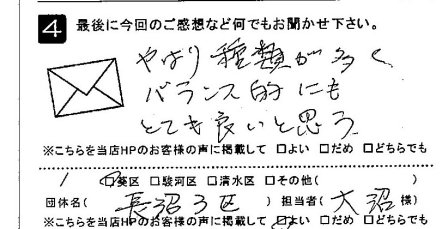 4 最後に今回のご感想など何でもお聞かせ下さい。
やはり種類が多く
バランス的にも
とても良いと思う
※こちらを当店HPのお客様の声に掲載して □よい □だめ □どちらでも
□葵区 □駿河区 □清水区 □その他( )
団体名( 長沼3区 ) 担当者( 大沼 様)
※こちらを当店HPのお客様の声に掲載して □よい □だめ □どちらでも